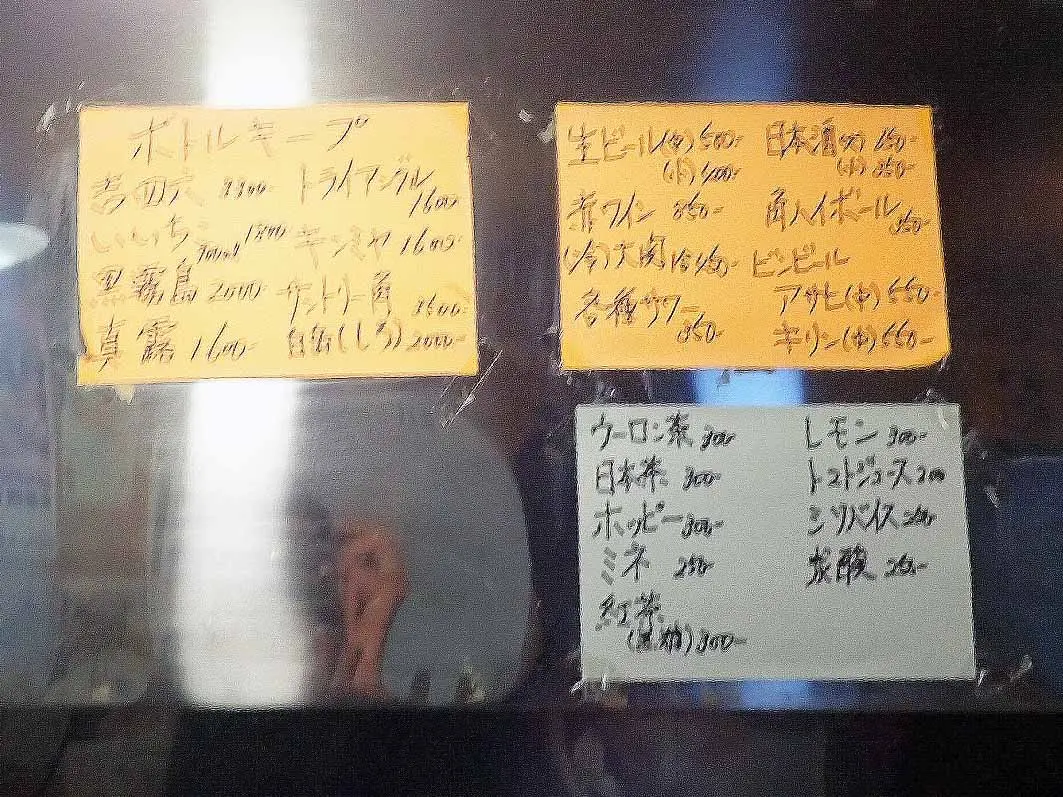 ボトルキープ
吉四六
トライアングル
1600-
いいちこ 900ml 1800
キンミヤ 1600-
黒霧島 2000-
サントリー角
3600-
真露 1600-
白岳(しろ) 2000-
生ビール(中) 500-
(小) 400-
赤ワイン 350-
各種サワー
350-
日本酒(大) 650-
(小) 350-
角ハイボール
350-
ビンビール
アサヒ(中) 550-
キリン(中) 550-
ウーロン茶 300-
日本茶 300-
ホッピー 300-
ミネ 250-
紅茶
300-
レモン 300-
トマトジュース 200
炭酸 250-